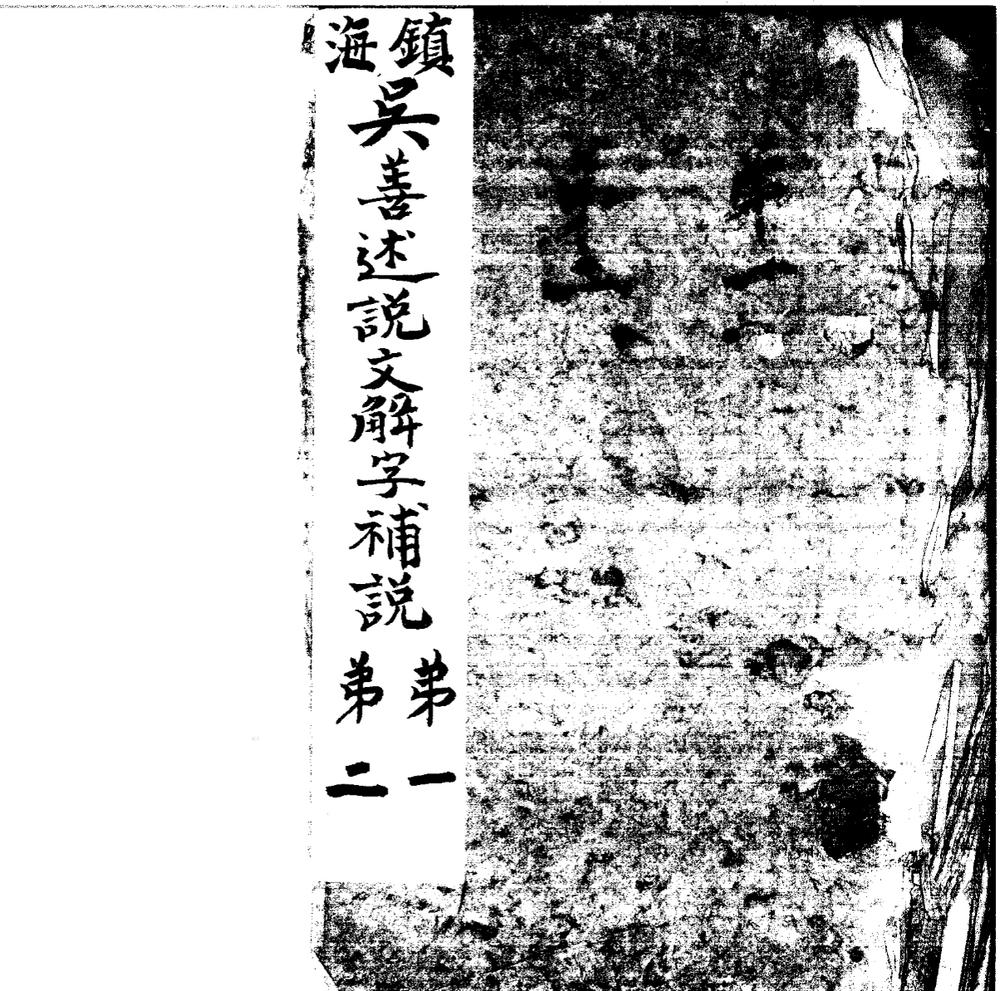 鎮海
吳善述說文解字補說
弟一
弟二